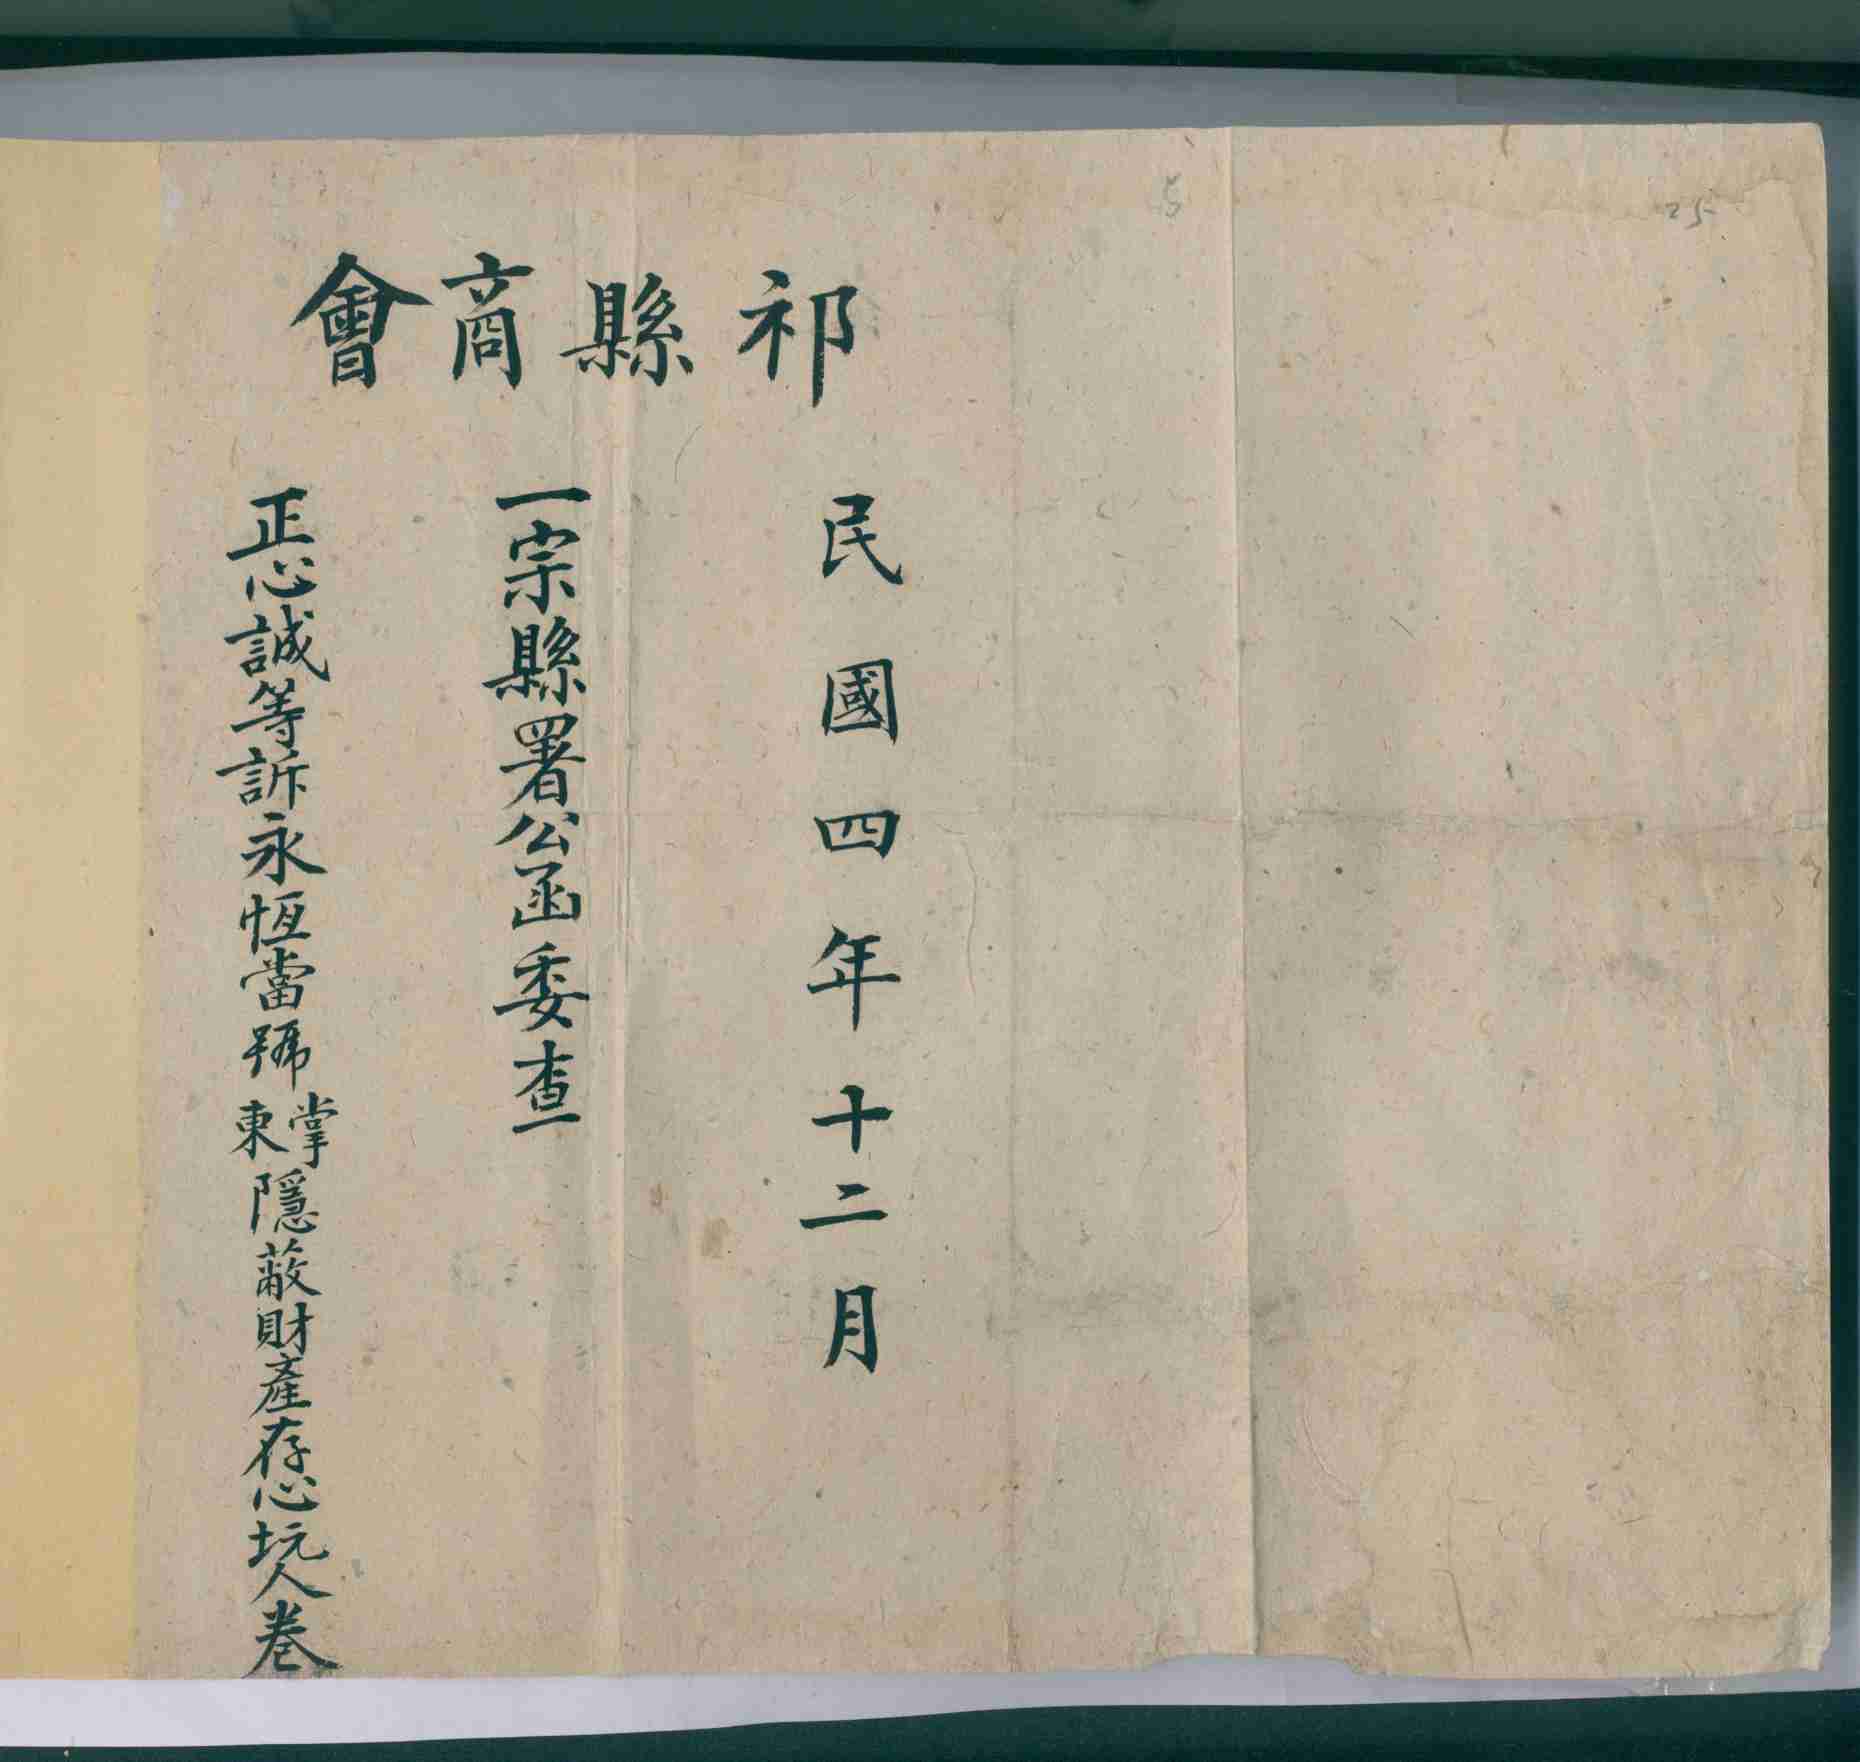 祁縣商會
民國四年十二月
一宗縣署公函委查
正心誠等訴永恆當號掌東隱蔽財產存心坑人卷
5
25